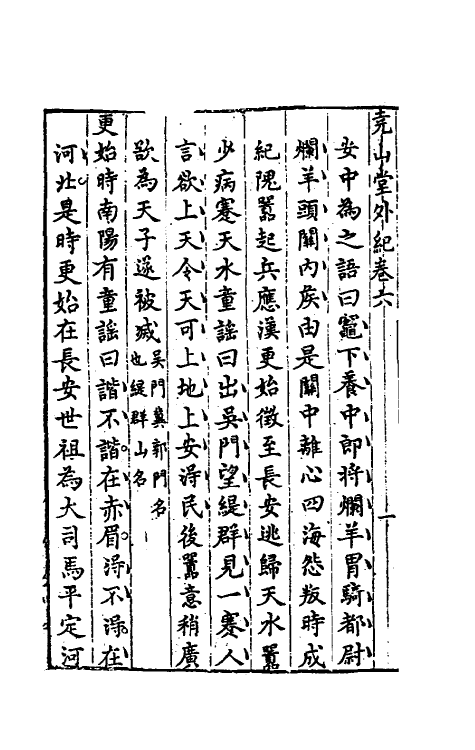 堯山堂外紀卷六
一
安中為之語曰竈下養中郎將爛羊胃騎都尉
爛羊頭關內矦由是關中離心四海怨叛時成
紀隗囂起兵應漢更始徵至長安逃歸天水囂
少病蹇天水童謠曰出吳門望緹群見一蹇人
言欲上天令天可上地上安淂民後囂意稍廣
欲為天子遂被滅吳門冀郭門名
也緹群山名
更始時南陽有童謠曰諧不諧在赤眉淂不淂在
河北是時更始在長安世祖為大司馬平定河